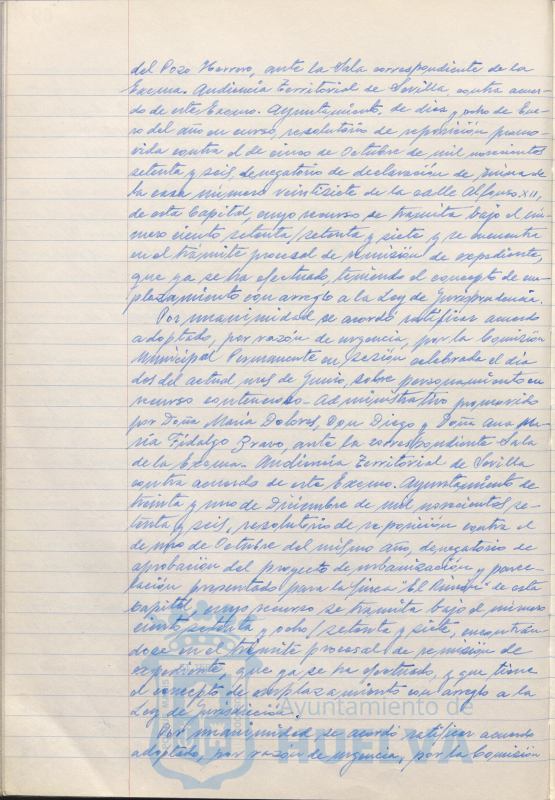 del Pozo Herrero, ante la Sala correspondiente de la
Excma. Audiencia Territorial de Sevilla contra acuer-
do de este Excmo. Ayuntamiento, de dies y ocho de Ene-
ro del año en curso, resolutorio de reposición promo-
vida contra el de cinco de Octubre de mil novecientos
setenta y seis, denegatorio de declaración de ruina de
la casa número veintisiete de la calle Alfonso XII,
de esta Capital, cuyo recurso, se tramita bajo el nú-
mero ciento setenta/setenta y siete y se encuentra
en el trámite procesal de remisión de expediente,
que ya se ha efectuado, teniendo el concepto de em-
plazamiento con arreglo a la Ley de
Por unanimidad se acordó ratificar acuerdo
adoptado, por razón de urgencia, por la Comisión
Municipal Permanente en sesión celebrada el día
dos del actual mes de Junio, sobre personamiento en
recurso contencioso-administrativo promovido
por Doña María Dolores, Don Diego y Doña Ana Ma-
ría Fidalgo Bravo, ante la correspondiente Sala
de la Excma. Audiencia Territorial de Sevilla
contra acuerdo de este Excmo. Ayuntamiento de
treinta y uno de Diciembre de mil novecientos se-
tenta y seis, resolutorio de reposición contra el
de uno de Octubre del mismo año, denegatorio de
aprobación del proyecto de urbanización y parce-
lación presentado para la finca "El Rincón" de esta
Capital, cuyo recurso se tramita bajo el número
ciento setenta y ocho/setenta y siete, encontrán-
dose en el trámite procesal de remisión de
expediente, que ya se ha efectuado, y que tiene
el concepto de emplazamiento con arreglo a la
Ley de Jurisdicción.
Por unanimidad se acordó ratificar acuerdo
adoptado, por razón de urgencia, por la Comisión
Ayuntamiento de
HUELVA